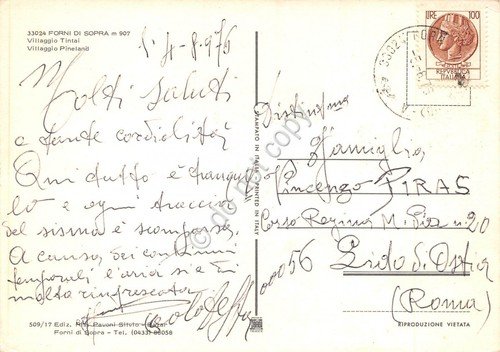 33024 FORNI DI SOPRA m 907
Villaggio Tintai
Villaggio Pineland
4-8-976
Molti saluti
e tante cordialità
Qui tutto è tranquil
lo e ogni traccia
del sisma è scomparsa
A causa dei continui
temporali l'aria si è di
molto rinfrescata
509/17 Ediz. Pavoni
Forni di Sopra - Tel. (0433) 88058
STAMPATO IN ITALIA PRINTED IN ITALY
LIRE 100
REPVBBLICA
ITALIANA
33024
do not copy
Famiglia
Vincenzo PIRAS
Corso Regina M. Pia n. 20
00056 Lido di Ostia
(Roma)
RIPRODUZIONE VIETATA